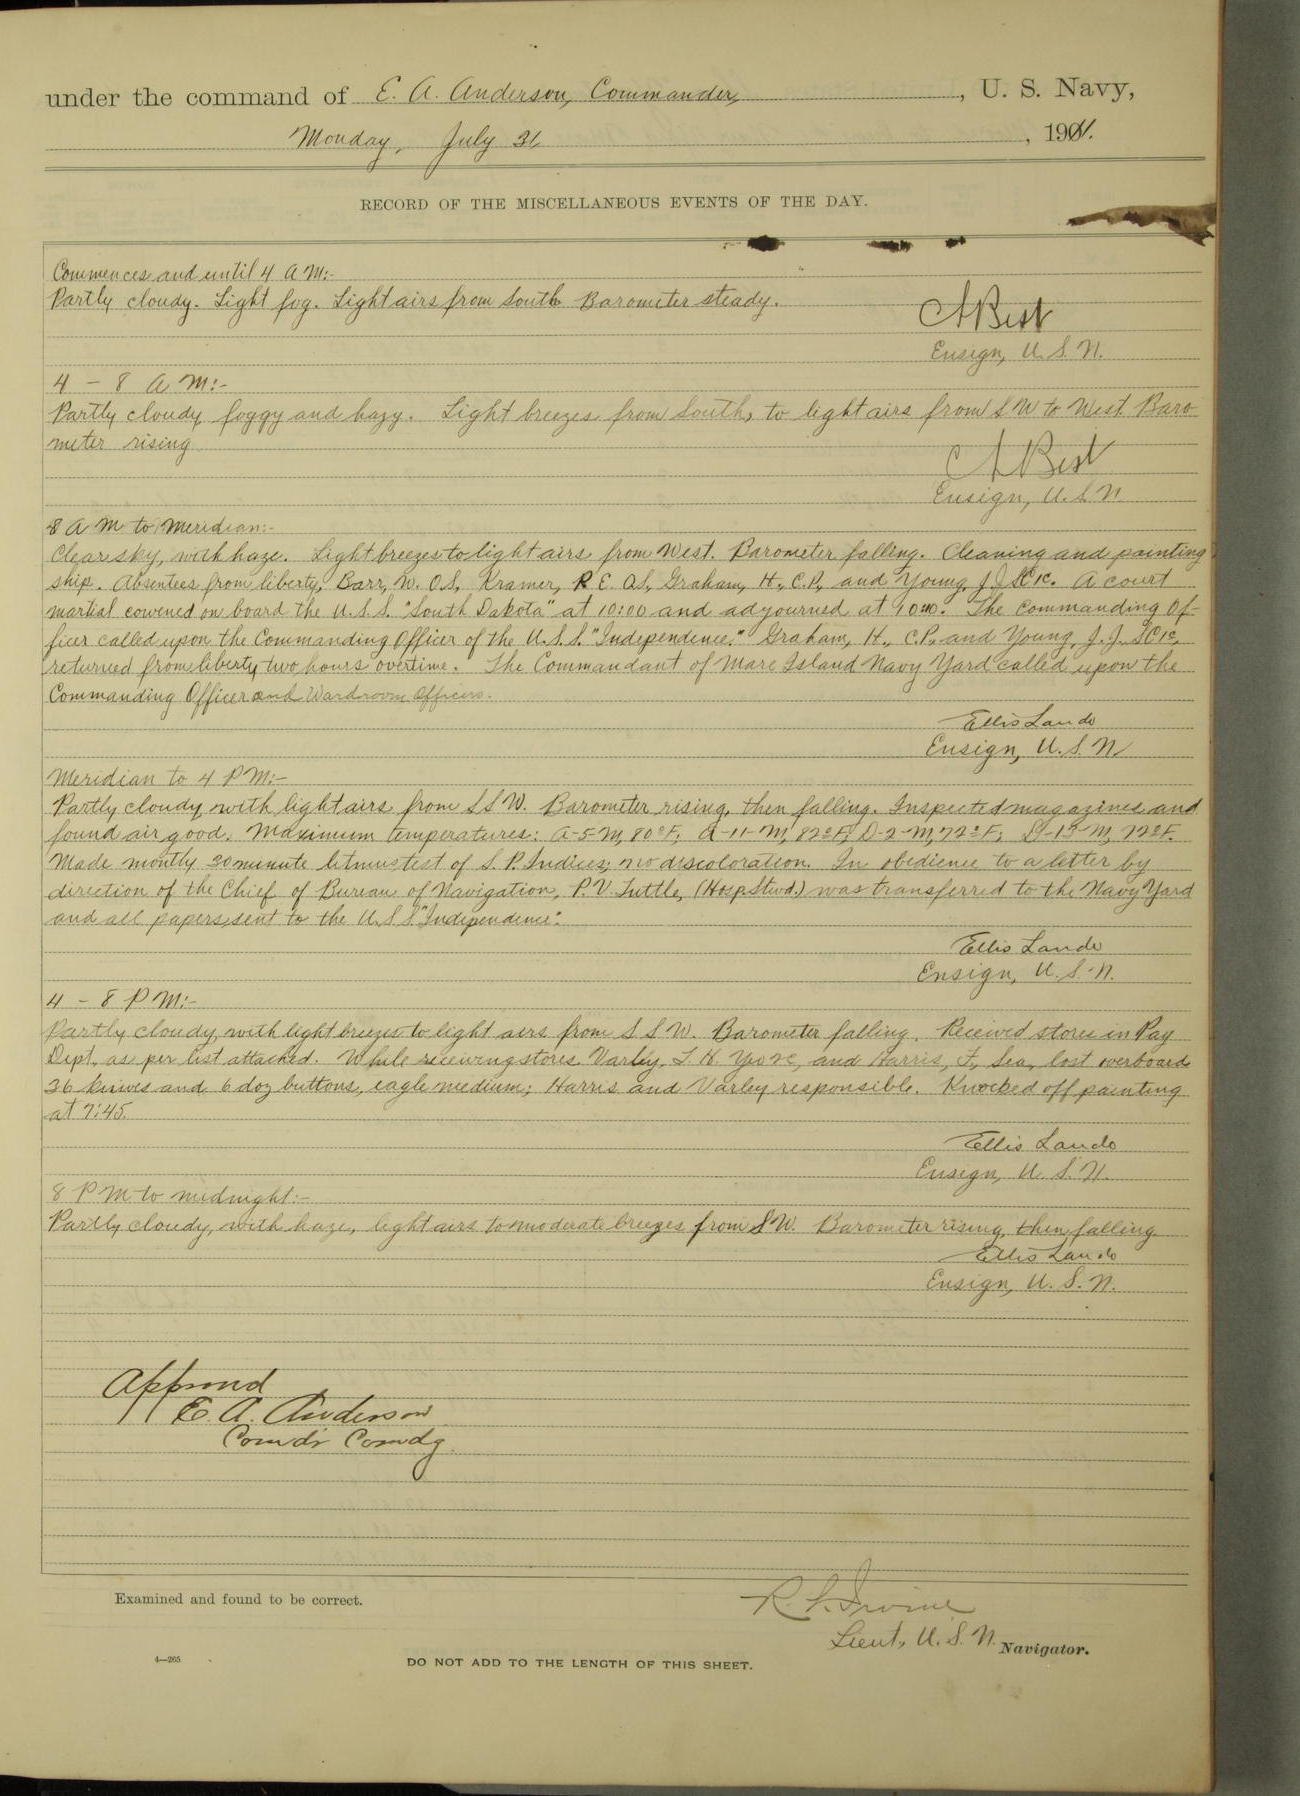 under the command of E. A. Anderson, Commander, , U. S. Navy,
Monday, July 31, , 1911.
RECORD OF THE MISCELLANEOUS EVENTS OF THE DAY.
Commences and until 4 A M:-
Partly cloudy. Light fog. Light airs from South. Barometer steady.
C A Best
Ensign, U. S. N.
4 - 8 A M:-
Partly cloudy, foggy and hazy. Light breezes from South, to light airs from S W to West. Baro-
meter rising
C A Best
Ensign, U. S. N
8 A M to Meridian:-
Clear sky, with haze. Light breezes to light airs from West. Barometer falling. Cleaning and painting
ship. Absentees from liberty, Barr, W. O.S., Kramer, R E. O.S., Graham, H., C.P., and Young, J. J. SC1c. A court
martial convened on board the U.S.S. "South Dakota" at 10:00 and adjourned at The Commanding Of-
ficer called upon the Commanding Officer of the U.S.S. "Independence." Graham, H., C.P., and Young, J. J. SC1c,
returned from liberty, two hours overtime. The Commandant of Mare Island Navy Yard called upon the
Commanding Officer and Wardroom Officers.
Ellis Lando
Ensign, U. S. N
Meridian to 4 P M:-
Partly cloudy, with light airs from S S W. Barometer rising, then falling. Inspected magazines and
found air good. Maximum temperatures: A-5-M, 80° F; A-11-M, 82° F; D-2-M, 72° F; D-13-M, 72° F.
Made montly 30 minute litmus test of S. P. Indices; no discoloration. In obedience to a letter by
direction of the Chief of Bureau of Navigation, P. V. Tuttle, (Hosp. Stwd.) was transferred to the Navy Yard
and all papers sent to the U.S.S. "Independence".
Ellis Lando
Ensign, U. S. N.
4 - 8 P M:-
Partly cloudy, with light breezes to light airs from S S W. Barometer falling. Received stores in Pay
Dept. as per list attached. While receiving stores Varley, T. H. and Harris, F., Sea, lost overboard
36 knives and 6 doz buttons, eagle medium; Harris and Varley responsible. Knocked off painting
at 7:45.
Ellis Lando
Ensign, U. S. N.
8 P M to midnight:-
Partly cloudy, with haze, light airs to moderate breezes from S W. Barometer rising, then falling
Ellis Lando
Ensign, U. S. N.
Approved
E. A. Anderson
Comdr Comdg.
Examined and found to be correct.
R. L. Irvine
Lieut, U. S. N. Navigator.
4—265
DO NOT ADD TO THE LENGTH OF THIS SHEET.